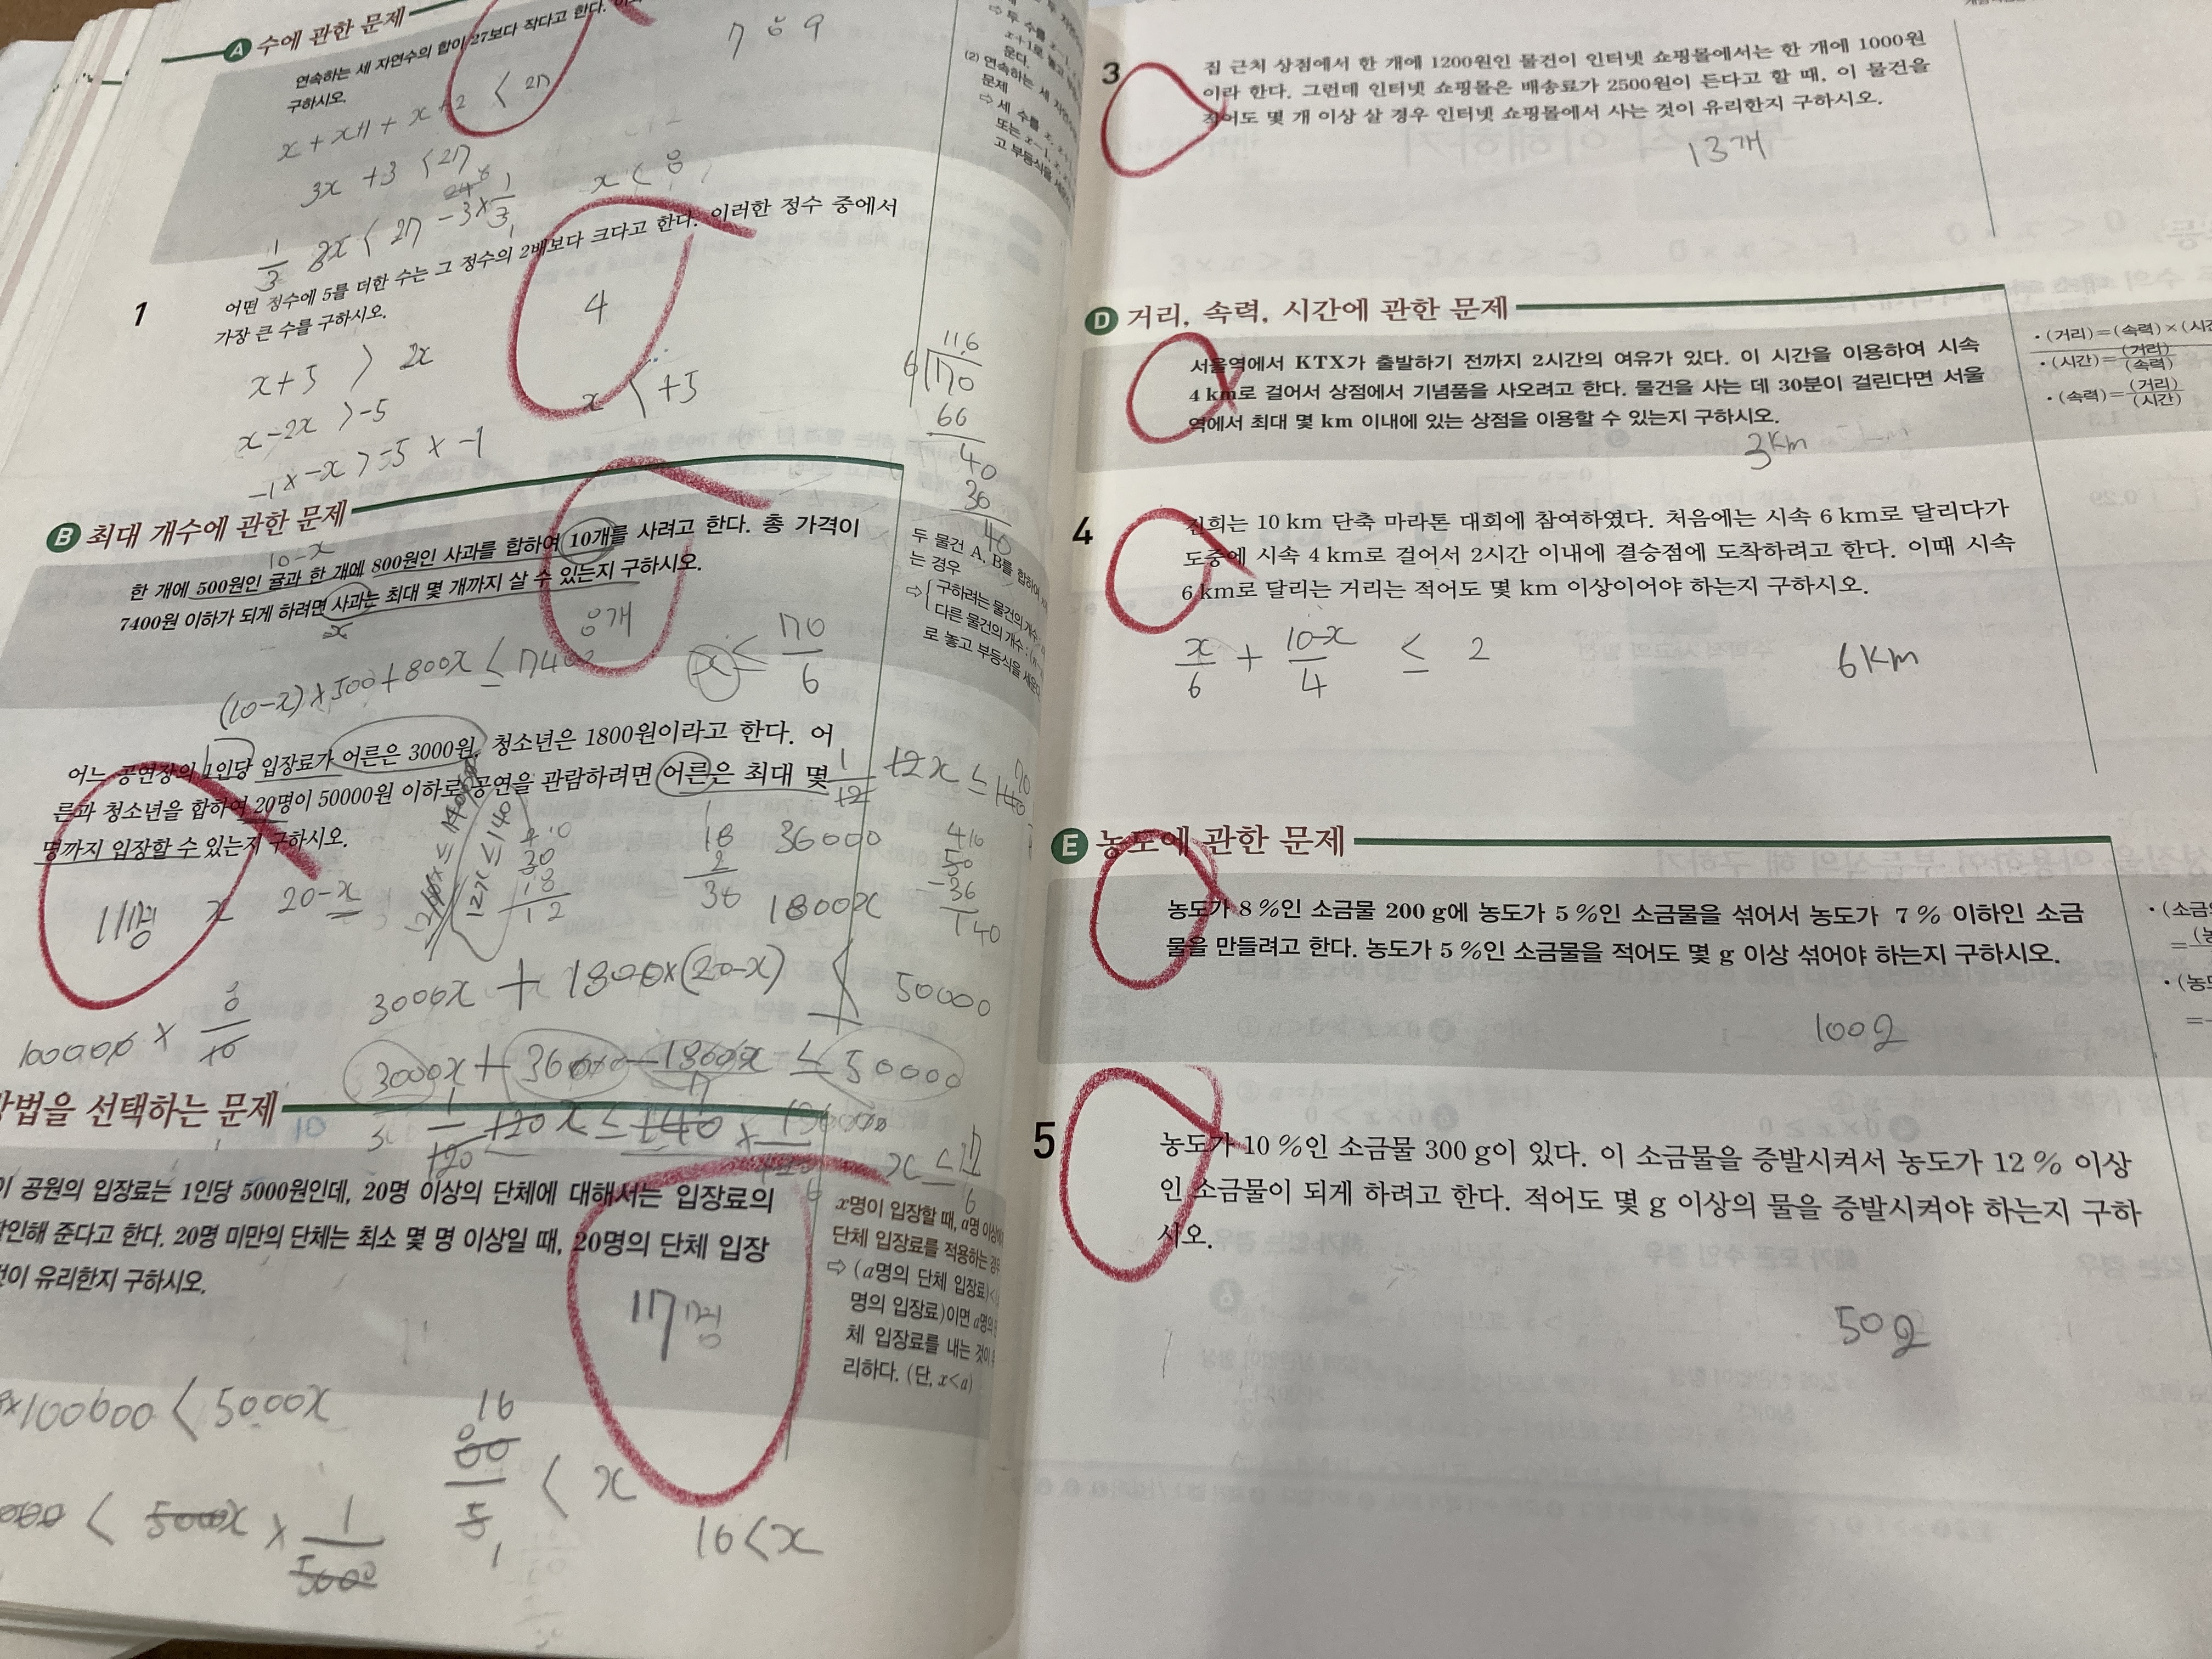 A 수에 관한 문제
연속하는 세 자연수의 합이 27보다 작다고 한다.
구하시오.
7 8 9
x + x+1 + x+2 < 27
3x + 3 < 27
x < 8
1/3 3x < 27 - 3 × 1/3
1 어떤 정수에 5를 더한 수는 그 정수의 2배보다 크다고 한다. 이러한 정수 중에서
가장 큰 수를 구하시오.
4
x+5 > 2x
x-2x > -5
-1 × -x > -5 × -1
x < +5
11.6
6 170
66
40
36
40
B 최대 개수에 관한 문제
10-x
한 개에 500원인 귤과 한 개에 800원인 사과를 합하여 10개를 사려고 한다. 총 가격이
7400원 이하가 되게 하려면 사과는 최대 몇 개까지 살 수 있는지 구하시오.
x
8개
(10-x)×500+800x ≤ 7400
x ≤ 70/6
두 물건 A, B를 합하여
는 경우
⇨ 구하려는 물건의 개수
다른 물건의 개수 :
로 놓고 부등식을 세운다.
어느 공연장의 1인당 입장료가 어른은 3000원, 청소년은 1800원이라고 한다. 어
른과 청소년을 합하여 20명이 50000원 이하로 공연을 관람하려면 어른은 최대 몇
명까지 입장할 수 있는지 구하시오.
11명
x 20-x
12x ≤ 140
30
18
12
18
2
36
36000
1800x
50
-36
140
3000x + 1800×(20-x) ≤ 50000
3000x + 36000 - 1800x ≤ 50000
100000 × 8/10
방법을 선택하는 문제
공원의 입장료는 1인당 5000원인데, 20명 이상의 단체에 대해서는 입장료의
할인해 준다고 한다. 20명 미만의 단체는 최소 몇 명 이상일 때, 20명의 단체 입장
것이 유리한지 구하시오.
17명
x명이 입장할 때, a명 이상의
단체 입장료를 적용하는 경우
⇨ (a명의 단체 입장료)<
명의 입장료)이면 a명의
체 입장료를 내는 것이
리하다. (단, x<a)
100000 < 5000x
16
80/5 < x
5000x × 1/5000
16 < x
3 집 근처 상점에서 한 개에 1200원인 물건이 인터넷 쇼핑몰에서는 한 개에 1000원
이라 한다. 그런데 인터넷 쇼핑몰은 배송료가 2500원이 든다고 할 때, 이 물건을
적어도 몇 개 이상 살 경우 인터넷 쇼핑몰에서 사는 것이 유리한지 구하시오.
13개
D 거리, 속력, 시간에 관한 문제
서울역에서 KTX가 출발하기 전까지 2시간의 여유가 있다. 이 시간을 이용하여 시속
4 km로 걸어서 상점에서 기념품을 사오려고 한다. 물건을 사는 데 30분이 걸린다면 서울
역에서 최대 몇 km 이내에 있는 상점을 이용할 수 있는지 구하시오.
3km
· (거리)=(속력)×(시간
· (시간)=(거리)/(속력)
· (속력)=(거리)/(시간)
4 진희는 10 km 단축 마라톤 대회에 참여하였다. 처음에는 시속 6 km로 달리다가
도중에 시속 4 km로 걸어서 2시간 이내에 결승점에 도착하려고 한다. 이때 시속
6 km로 달리는 거리는 적어도 몇 km 이상이어야 하는지 구하시오.
x/6 + 10-x/4 ≤ 2
6km
E 농도에 관한 문제
농도가 8 %인 소금물 200 g에 농도가 5 %인 소금물을 섞어서 농도가 7 % 이하인 소금
물을 만들려고 한다. 농도가 5 %인 소금물을 적어도 몇 g 이상 섞어야 하는지 구하시오.
100g
5 농도가 10 %인 소금물 300 g이 있다. 이 소금물을 증발시켜서 농도가 12 % 이상
인 소금물이 되게 하려고 한다. 적어도 몇 g 이상의 물을 증발시켜야 하는지 구하
시오.
50g